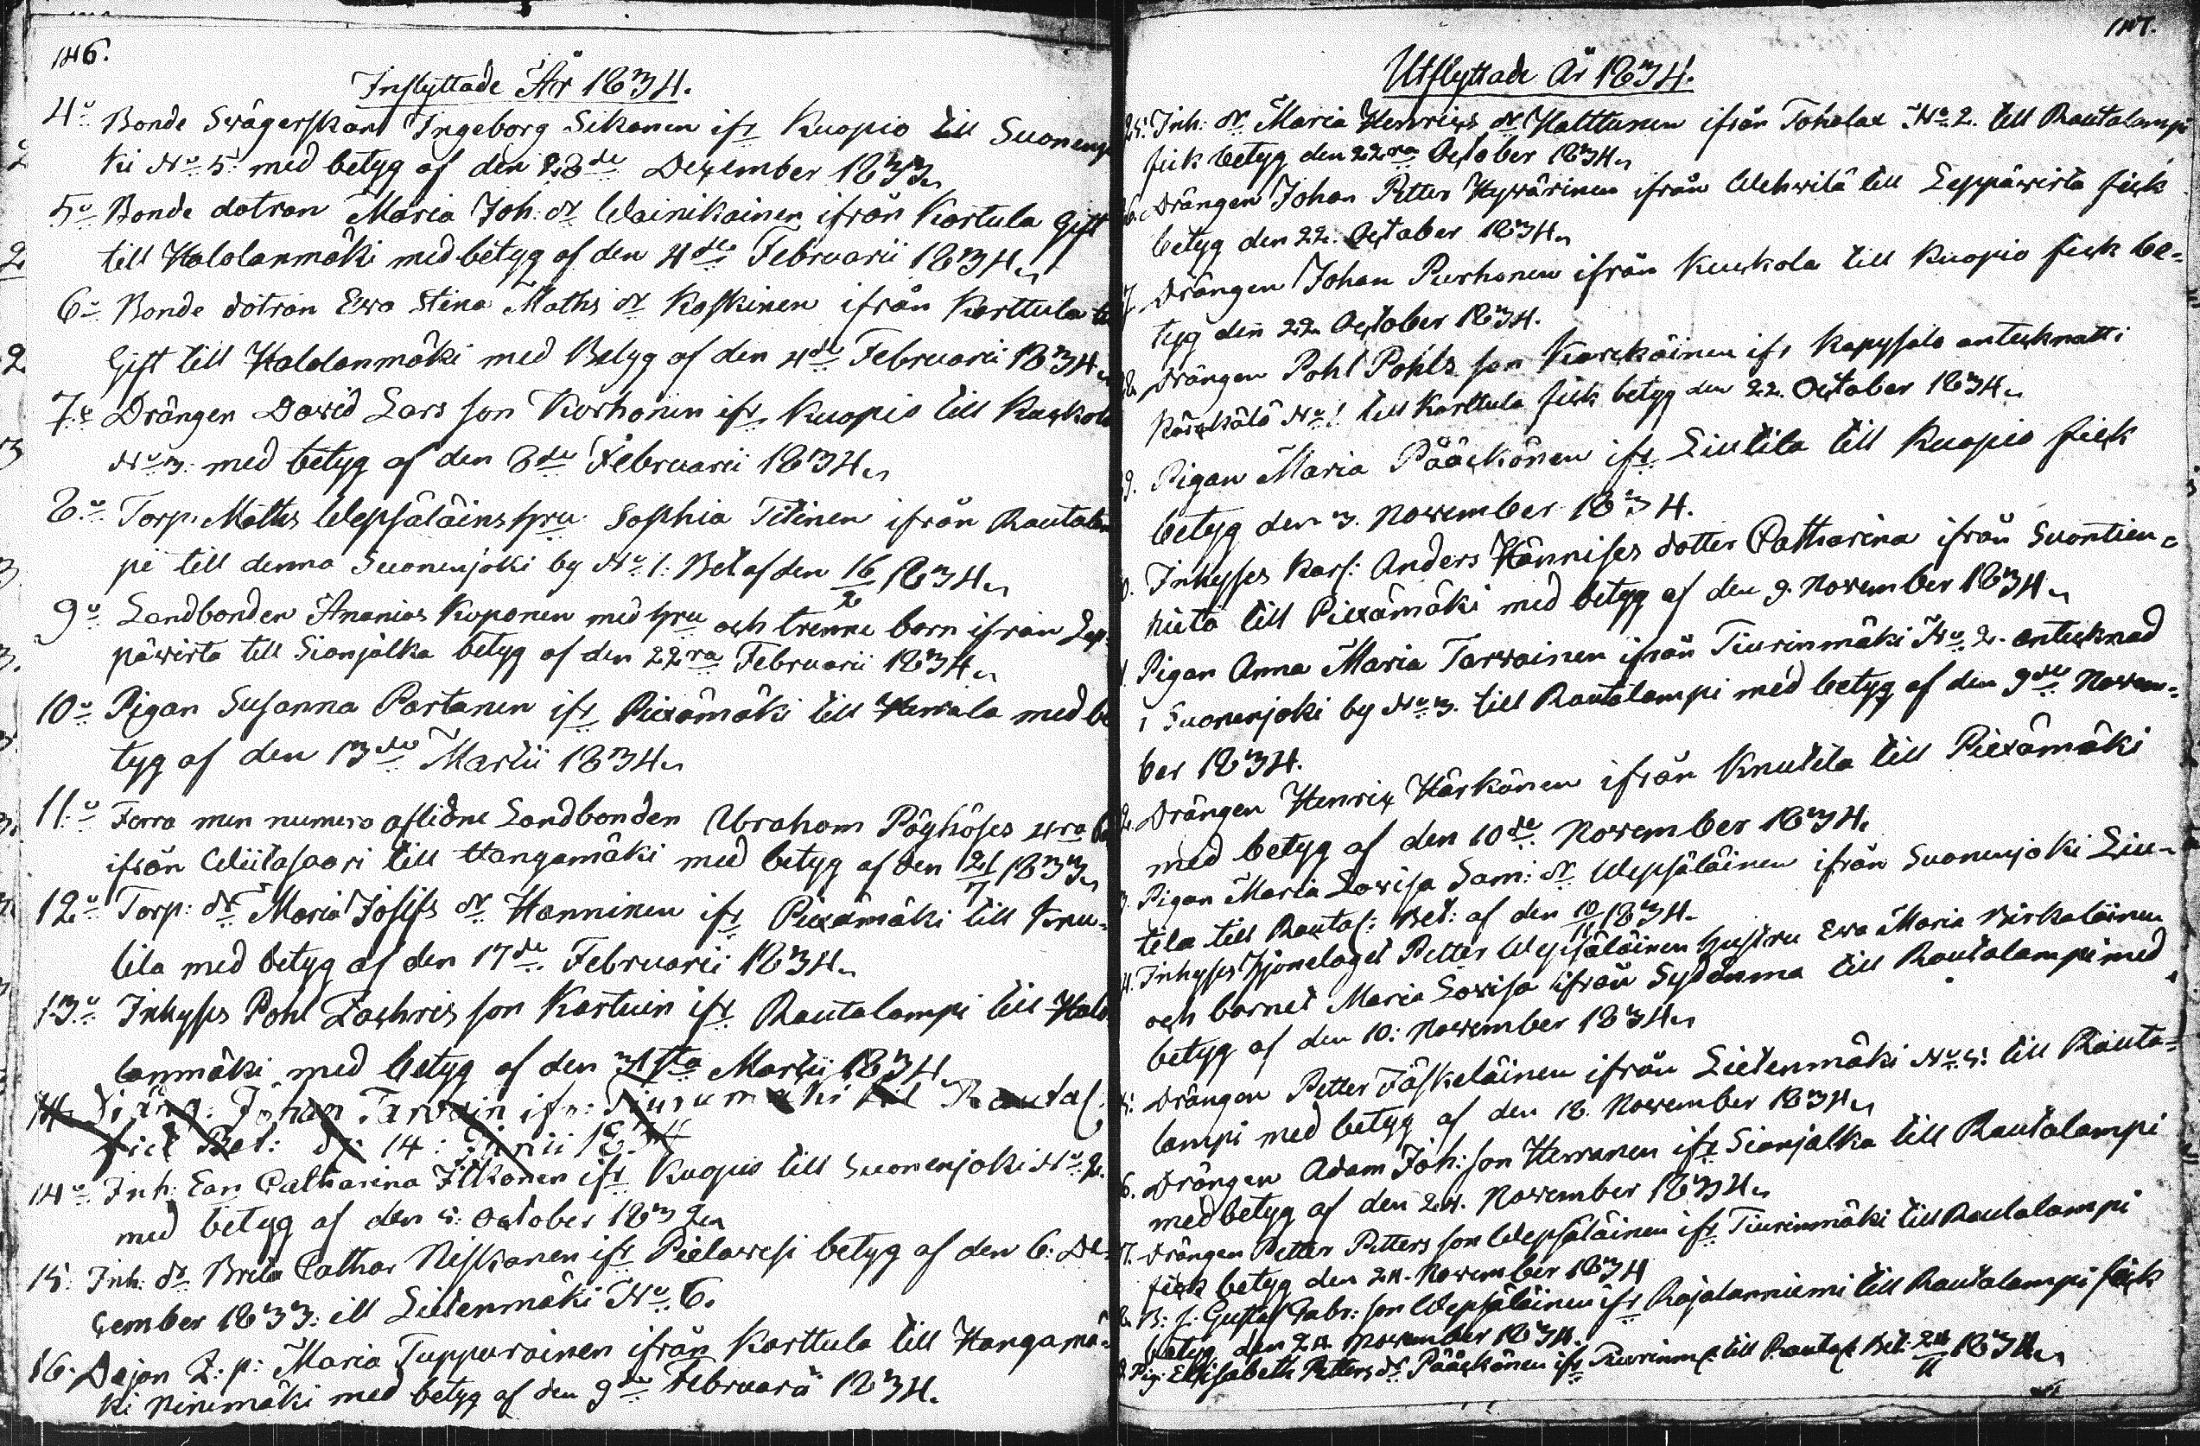 146.
Inflyttade År 1834.
4o Bonde Svägerskan Ingeborg Sikanen ifr Kuopio till Suonenjo
ki No 5: med betyg af den 28de December 1833.
5o Bonde dotran Maria Joh: dr Wainikainen ifrån Kartula Gift
till Halolanmäki med betyg af den 4de Februarii 1834.
6o Bonde dotran Ewa Stina Maths dr Koskinen ifrån Karttula
Gift till Halolanmäki med Betyg af den 4de Februarii 1834.
7o Drängen David Lars son Korhonen ifr Kuopio till Kuckola
No 3: med betyg af den 8de Februarii 1834.
8o Torp: Maths Wepsäläins hru: Sophia Titinen ifrån Rautalam
pi till denna Suonenjoki by No 1: Bet af den 16/2 1834.
9o Landbonden Ananias Koponen med hru och trenne barn ifrån Lep-
päwirta till Sianjalka betyg af den 22ra Februarii 1834.
10o Pigan Susanna Partanen ifr Piexämäki till Herrala med be
tyg af den 13de Martii 1834.
11o Forra men numera aflidne Landbonden Abraham Pöyhöses 4ra
ifrån Wiitasaari till Hangamäki med betyg af den 21/7 1833.
12o Torp: dr Maria Josefs dr Hanninen ifr Piexämäki till Knu-
tila med betyg af den 17de Februarii 1834.
13o Inhyses Pohl Zachris son Kartuin ifr Rautalampi till Halo
lanmäki med betyg af den 31sta Martii 1834.
14 Dräng: Johan Tarvain ifr: Tiurumäki till Rautal.
fick Bet: d: 14: Junii 1834
14o Inh: Earl Catharina Itkonen ifr Kuopio till Suonenjoki No 2.
med betyg af den 5: October 1832.
15: Inh: dr Brita Cathar Niskanen ifr Pielawesi betyg af den 6: De-
cember 1833: ill Lietenmäki No 6.
16. Dejan L: p: Maria Tuppurainen ifrån Karttula till Hangamä-
ki Ninimäki med betyg af den 9de Februarii 1834.
147.
Utflyttade År 1834.
25: Inh: dr Maria Henrics dr Halttunen ifrån Toholax No 2. till Rautalampi
fick betyg den 22ra October 1834.
6. Drängen Johan Petter Hyvärinen ifrån Wehwilä till Leppäwirta fick
betyg den 22. October 1834.
7 Drängen Johan Purhonen ifrån Kuckola till Kuopio fick be-
tyg den 22 October 1834.
8. Drängen Pohl Pohls son Kareckäinen ifr Kopysalo antecknatt i
Käräkälä No 1 till Karttula fick betyg den 22. October 1834.
9. Pigan Maria Pääckönen ifr Liutila till Kuopio fick
betyg den 3. November 1834.
0. Inhyses Karl: Anders Hännises dotter Catharina ifrån Suontien-
nieta till Piexämäki med betyg af den 9. November 1834.
1. Pigan Anna Maria Tarvainen ifrån Tiurinmäki No 2. antecknad
i Suonenjoki by No 3. till Rautalampi med betyg af den 9de Novem-
ber 1834.
2. Drängen Henric Härkönen ifrån Knutila till Piexämäki
med betyg af den 10de November 1834.
3. Pigan Maria Lovisa Sam: dr Wepsäläinen ifrån Suonenjoki Liu-
tila till Rautal: Bet: af den 10/11 1834.
4. Inhyses Hjonelaget Petter Wepsäläinen hustru Ewa Maria Pirkaläinen
och barnet Maria Lovisa ifrån Sydänma till Rautalampi med
betyg af den 10: November 1834.
5: Drängen Petter Jäskeläinen ifrån Lietenmäki No 5: till Rauta-
lampi med betyg af den 18. November 1834.
6. Drängen Adam Joh: son Herranen ifr Sianjalka till Rautalampi
med betyg af den 24. November 1834.
7. Drängen Petter Petters son Wepsäläinen ifr Tiurinmäki till Rautalampi
fick betyg den 24. November 1834
8. B: s: Gustaf Gabr: son Wepsäläinen ifr Rajalanniemi till Rautalampi fick
betyg den 24 November 1834.
9. Pig: Elisabeth Petters dr Pääckönen ifr Tiurinm: till Rautal: Bet: 24/11 1834.